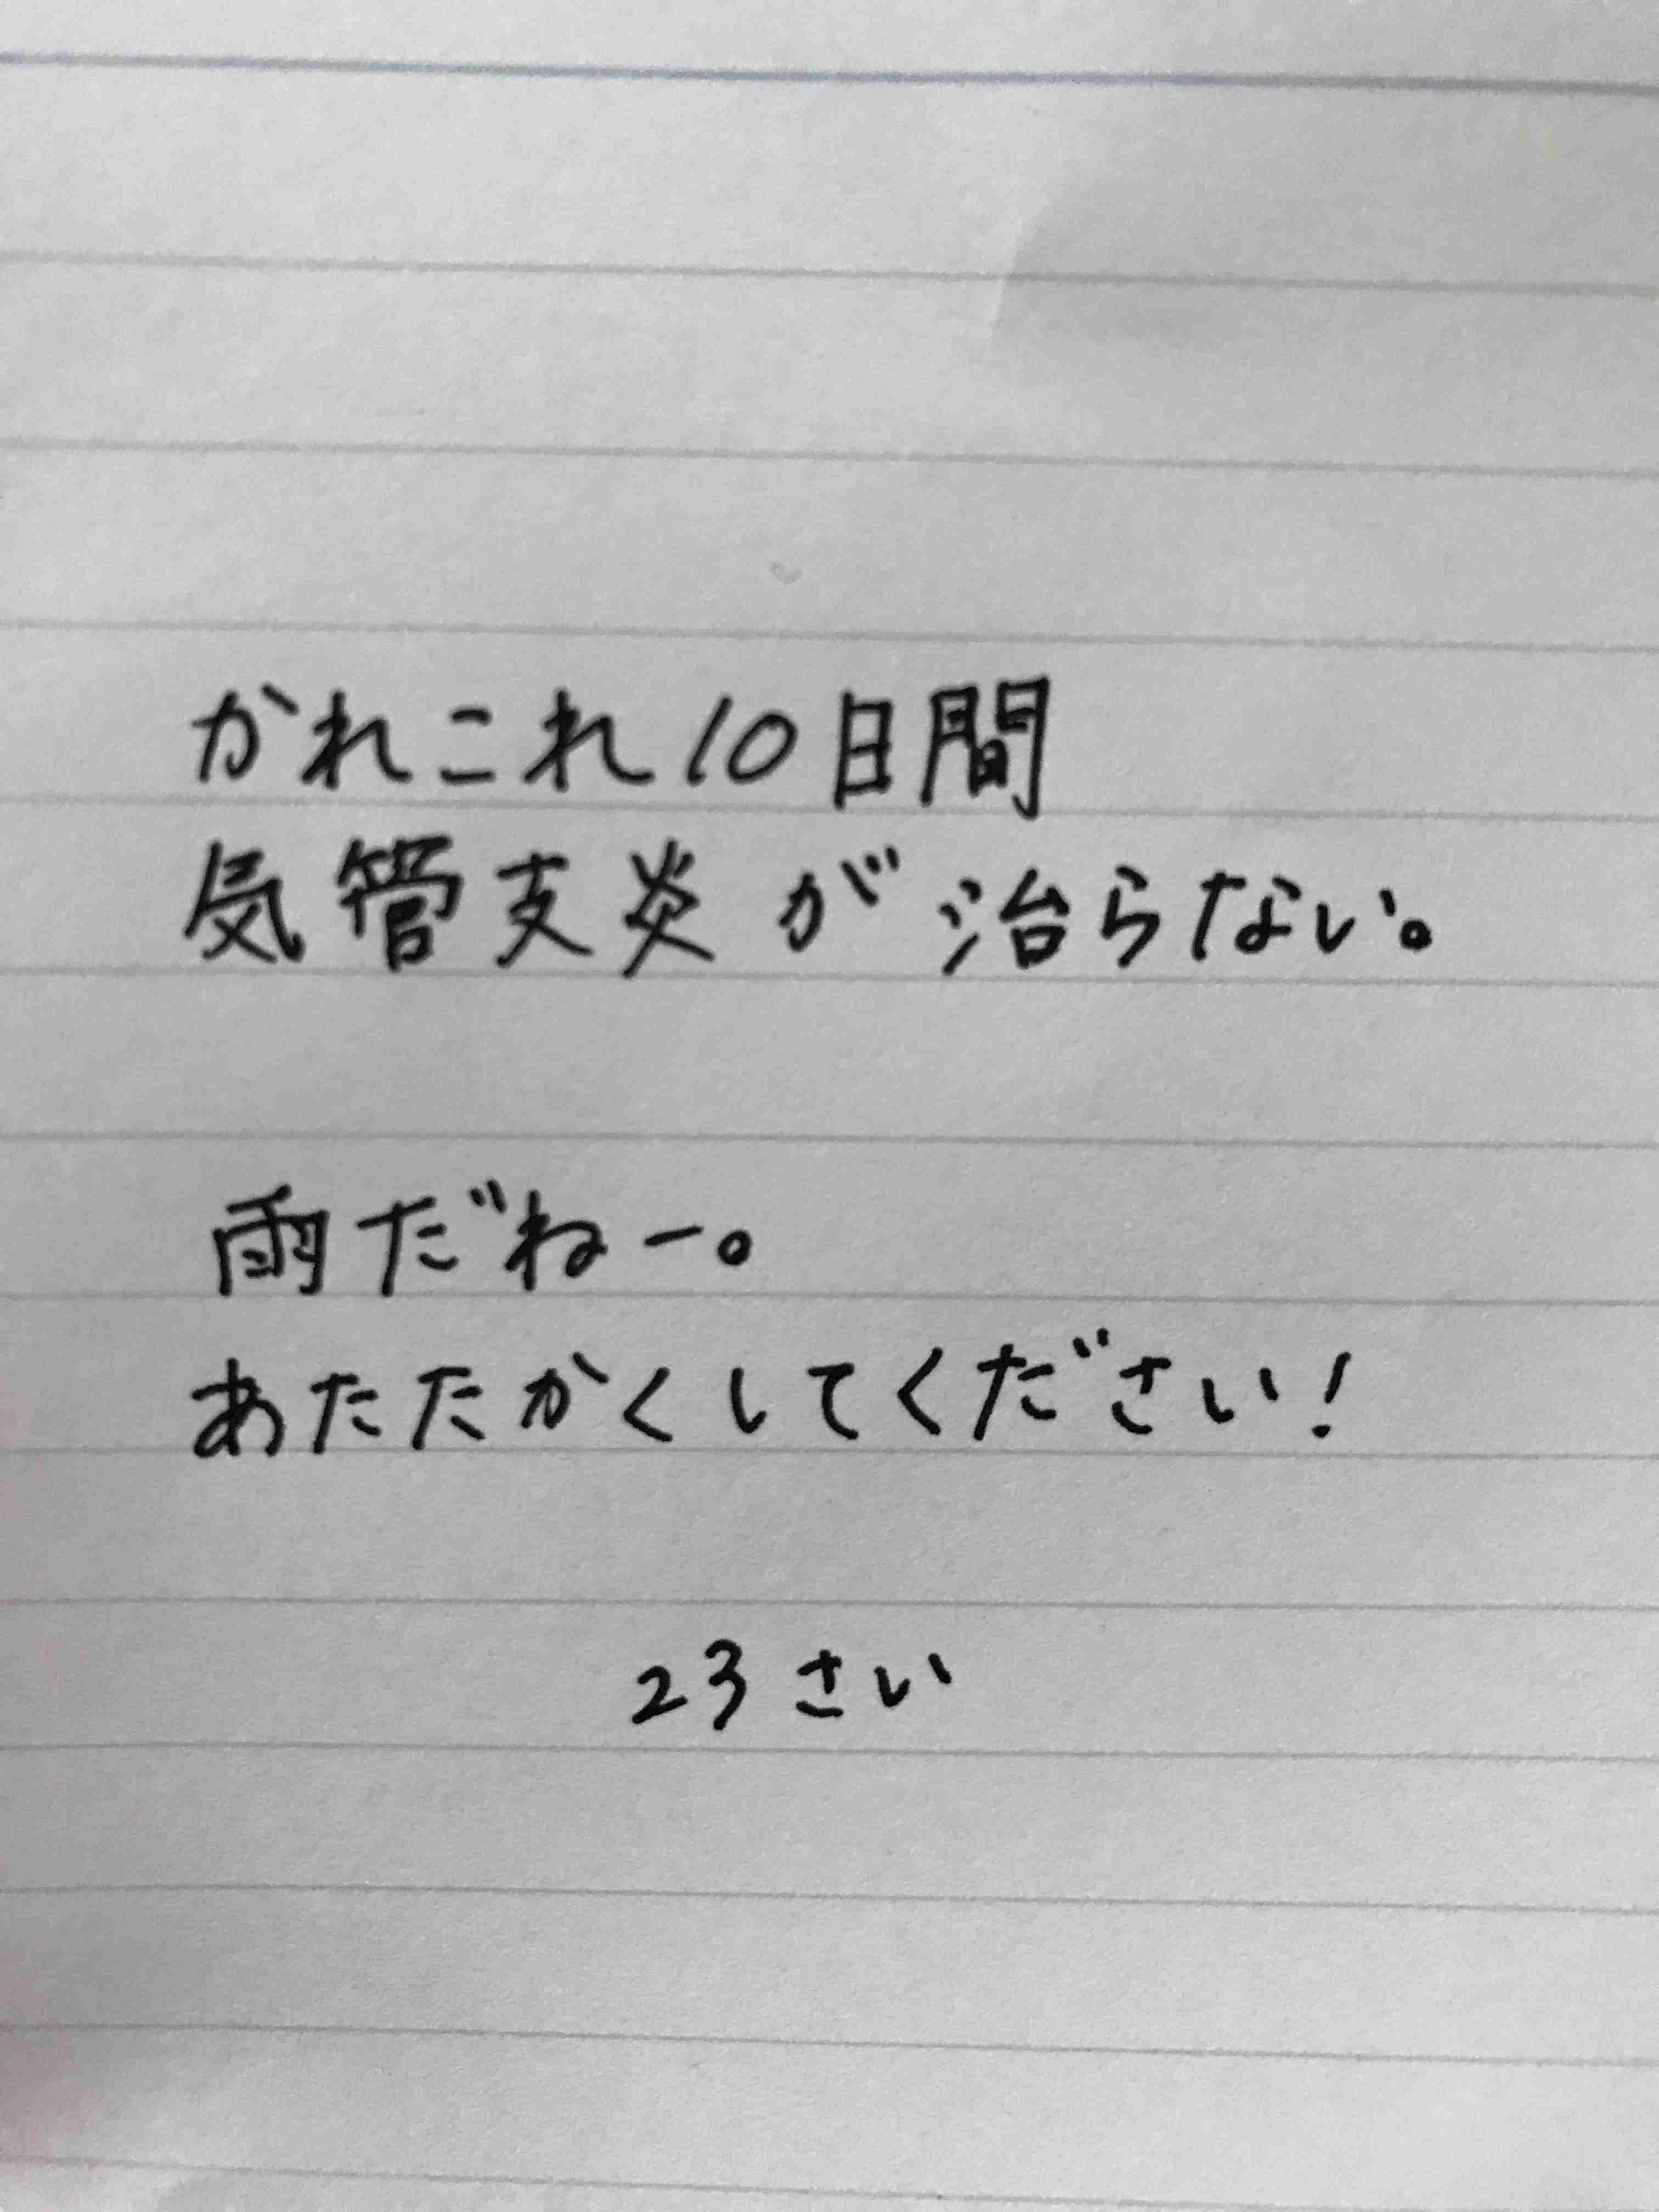 かれこれ10日間
気管支炎が治らない。
雨だねー。
あたたかくしてください!
23さい